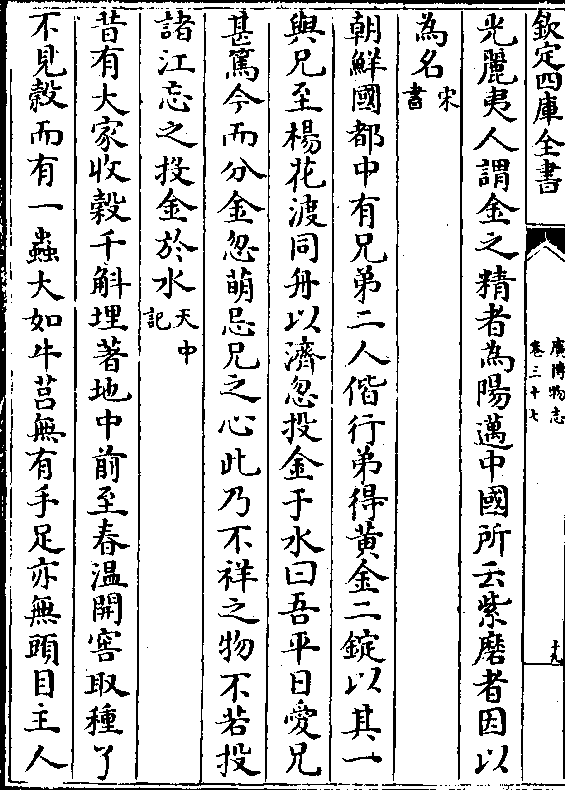 欽定四庫全書
廣博物志
卷三十七
十九
光麗夷人謂金之精者為陽邁中國所云紫磨者因以
為名宋書
朝鮮國都中有兄弟二人偕行弟得黄金二錠以其一
與兄至楊花渡同舟以濟忽投金于水曰吾平日愛兄
甚篤今而分金忽萌忌兄之心此乃不祥之物不若投
諸江忘之投金於水天中記
昔有大家收穀千斛埋著地中前至春温開窖取種了
不見穀而有一蟲大如牛莒無有手足亦無頭目主人